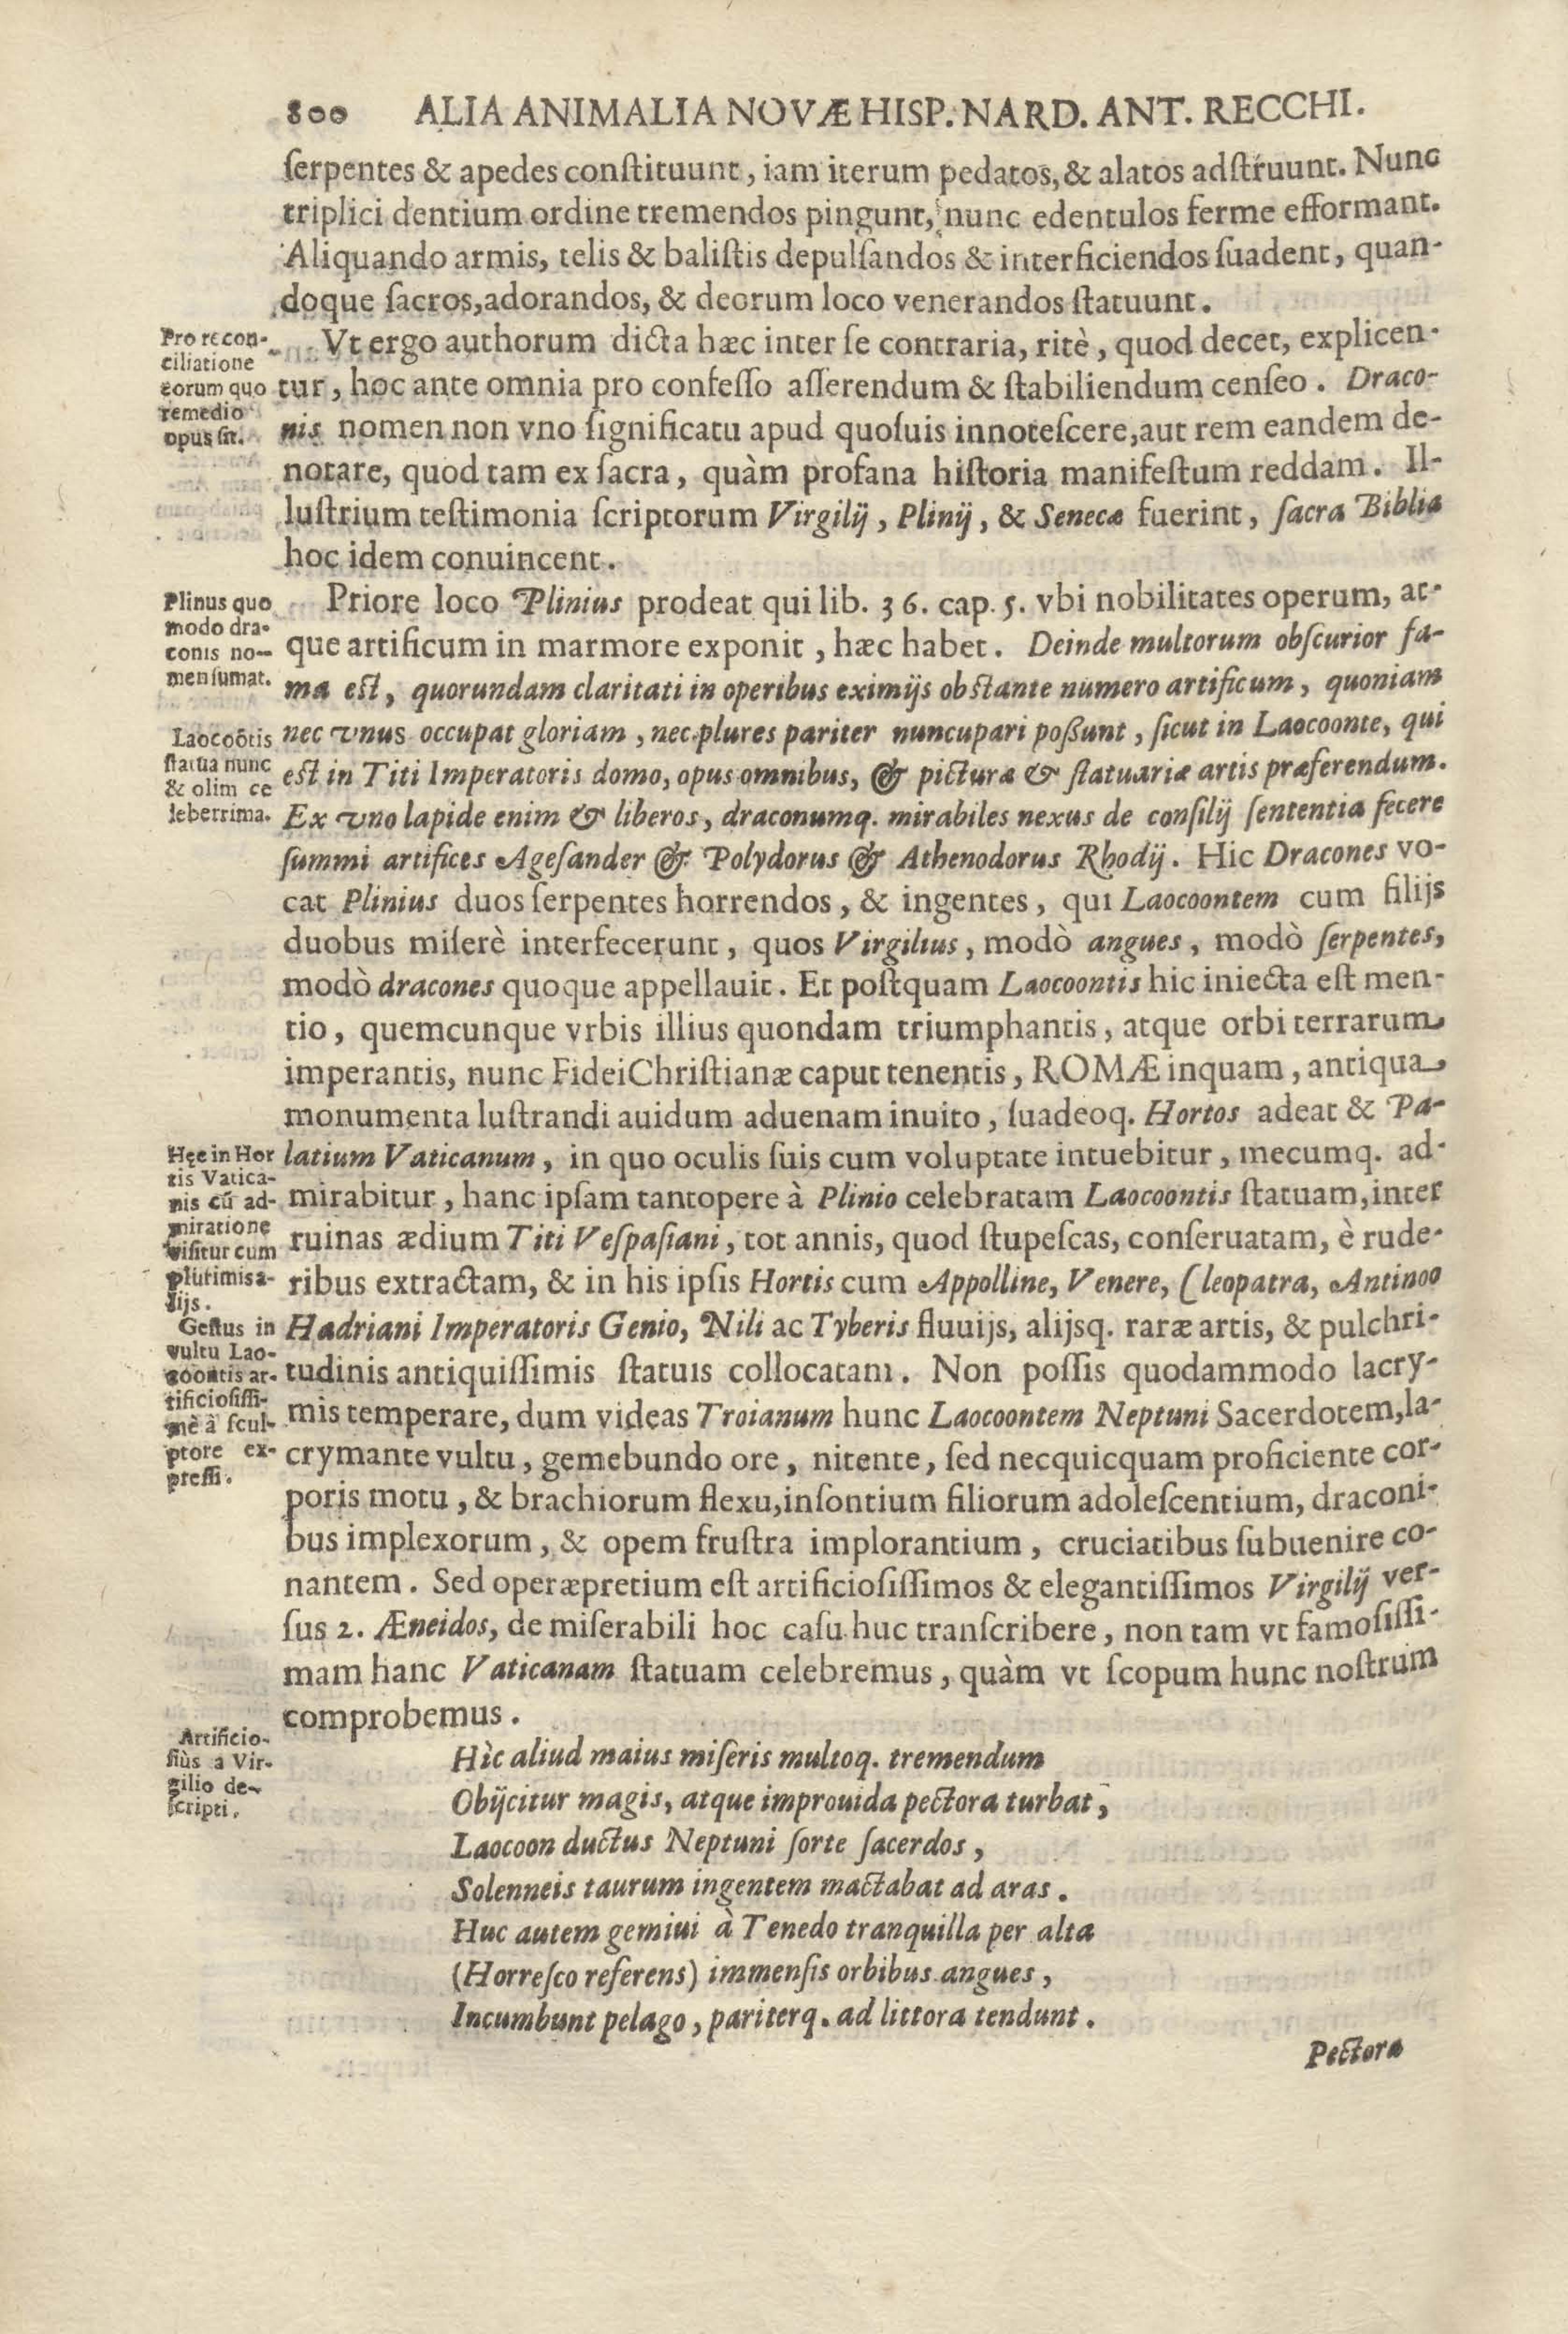 800 ALIA ANIMALIA NOVÆ HISP. NARD. ANT. RECCHI.
ſerpentes & apedes conſtituunt, iam iterum pedatos, & alatos adſtruunt. Nunc
triplici dentium ordine tremendos pingunt, nunc edentulos ferme efformant.
Aliquando armis, telis & baliſtis depulſandos & interficiendos ſuadent, quan-
doque ſacros, adorandos, & deorum loco venerandos ſtatuunt.
Pro recon-
ciliatione
eorum quo
remedio
opus ſit.
Vt ergo authorum dicta hæc inter ſe contraria, ritè, quod decet, explicen-
tur, hoc ante omnia pro confeſſo aſſerendum & ſtabiliendum cenſeo. Draco-
nis nomen non vno ſignificatu apud quoſuis innoteſcere, aut rem eandem de-
notare, quod tam ex ſacra, quàm profana hiſtoria manifeſtum reddam. Il-
luſtrium teſtimonia ſcriptorum Virgilij, Plinij, & Senecæ fuerint, ſacra Biblia
hoc idem conuincent.
Plinus quo
modo dra-
conis no-
men ſumat.
Priore loco Plinius prodeat qui lib. 36. cap. 5. vbi nobilitates operum, at-
que artificum in marmore exponit, hæc habet. Deinde multorum obſcurior fa-
ma eſt, quorundam claritati in operibus eximijs obſtante numero artificum, quoniam
Laocoōtis
ſtatua nunc
& olim ce
leberrima.
nec vnus occupat gloriam, nec plures pariter nuncupari poßunt, ſicut in Laocoonte, qui
eſt in Titi Imperatoris domo, opus omnibus, & picturæ & ſtatuariæ artis præferendum.
Ex vno lapide enim & liberos, draconumq. mirabiles nexus de conſilij ſententia fecere
ſummi artifices Ageſander & Polydorus & Athenodorus Rhodij. Hic Dracones vo-
cat Plinius duos ſerpentes horrendos, & ingentes, qui Laocoontem cum filijs
duobus miſerè interfecerunt, quos Virgilius, modò angues, modò ſerpentes,
modò dracones quoque appellauit. Et poſtquam Laocoontis hic iniecta eſt men-
tio, quemcunque vrbis illius quondam triumphantis, atque orbi terrarum
imperantis, nunc Fidei Chriſtianæ caput tenentis, ROMÆ inquam, antiqua
monumenta luſtrandi auidum aduenam inuito, ſuadeoq. Hortos adeat & Pa-
Hęc in Hor
tis Vatica-
nis cū ad-
miratione
viſitur cum
plurimis a-
lijs.
latium Vaticanum, in quo oculis ſuis cum voluptate intuebitur, mecumq. ad-
mirabitur, hanc ipſam tantopere à Plinio celebratam Laocoontis ſtatuam, inter
ruinas ædium Titi Veſpaſiani, tot annis, quod ſtupeſcas, conſeruatam, è rude-
ribus extractam, & in his ipſis Hortis cum Appolline, Venere, Cleopatra, Antinoo
Geſtus in
vultu Lao-
coontis ar-
tificioſiſſi-
mè à ſcul-
ptore ex-
preſſi.
Hadriani Imperatoris Genio, Nili ac Tyberis fluuijs, alijsq. raræ artis, & pulchri-
tudinis antiquiſſimis ſtatuis collocatam. Non poſſis quodammodo lacry-
mis temperare, dum videas Troianum hunc Laocoontem Neptuni Sacerdotem, la-
crymante vultu, gemebundo ore, nitente, ſed necquicquam proficiente cor-
poris motu, & brachiorum flexu, inſontium filiorum adoleſcentium, draconi-
bus implexorum, & opem fruſtra implorantium, cruciatibus ſubuenire co-
nantem. Sed operæpretium eſt artificioſiſſimos & elegantiſſimos Virgilij ver-
ſus 2. Æneidos, de miſerabili hoc caſu huc tranſcribere, non tam vt famoſiſſi-
mam hanc Vaticanam ſtatuam celebremus, quàm vt ſcopum hunc noſtrum
comprobemus.
Artificio-
ſiùs a Vir-
gilio de-
ſcripti.
Hìc aliud maius miſeris multoq. tremendum
Obijcitur magis, atque improuida pectora turbat,
Laocoon ductus Neptuni ſorte ſacerdos,
Solenneis taurum ingentem mactabat ad aras.
Huc autem gemiui à Tenedo tranquilla per alta
(Horreſco referens) immenſis orbibus angues,
Incumbunt pelago, pariterq. ad littora tendunt.
Pectora